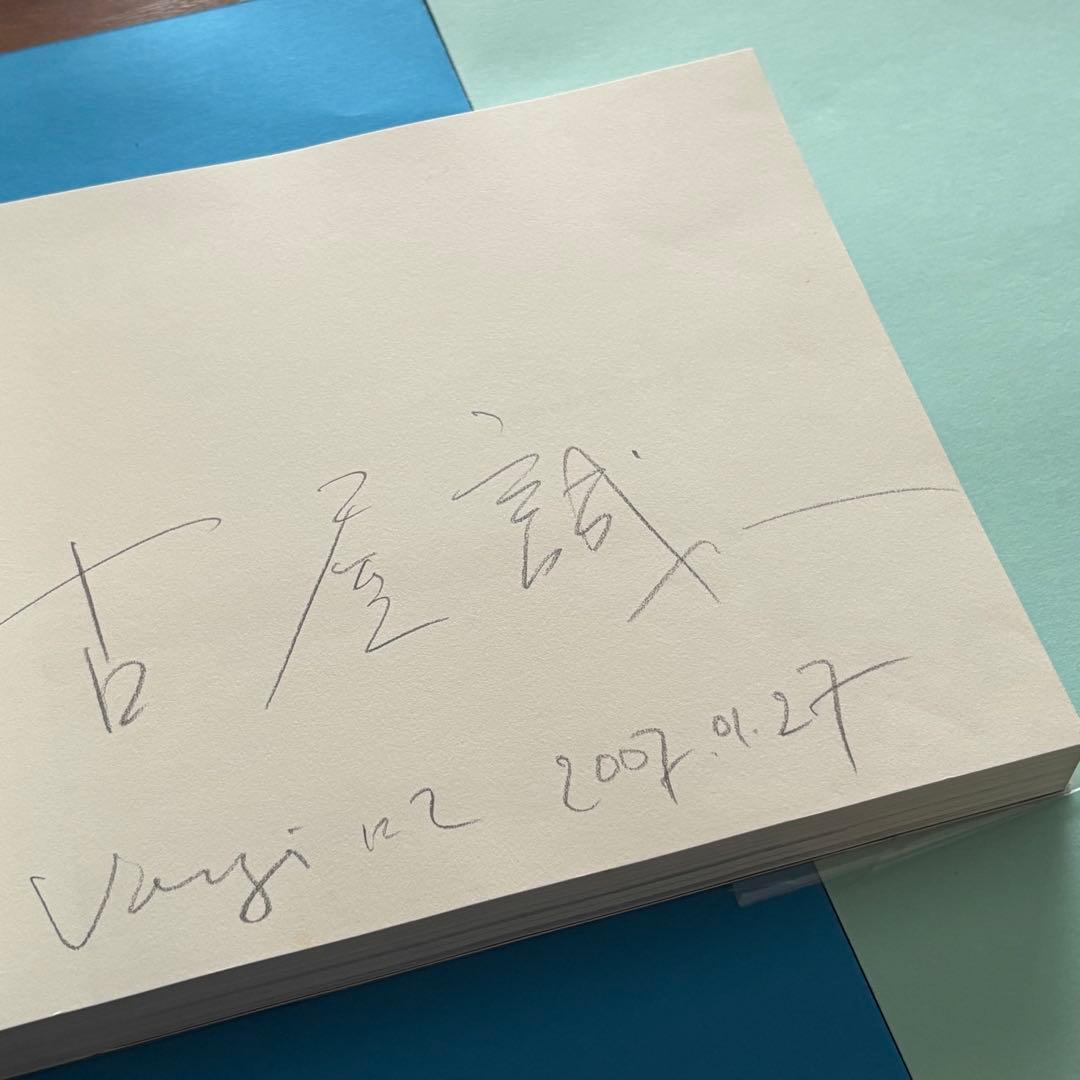 古屋誠一
Vangi にて 2007.01.27